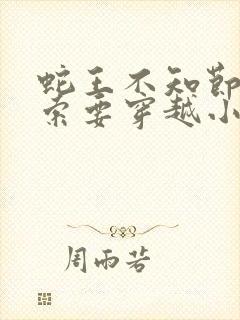 蛇王不知节
索要穿越小
周雨若